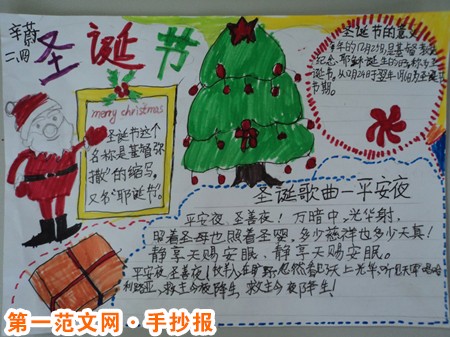 辛蔚
二.四
圣诞节
merry christmas
圣诞节这个
名称是基督弥
撒"的缩写,
又名"耶诞节"。
圣诞节的意义
年的12月25日,是基督教徒
纪念耶稣诞生的日,称为圣
诞节,从12月24日至翌年1月6日为圣诞节
节期。
圣诞歌曲一平安夜
平安夜,圣善夜!万暗中,光华射,
照着圣母也照着圣婴,多少慈祥也多少天真!
静享天赐安眠,静享天赐安眠。
平安夜圣善夜!牧羊人,在旷野,忽然看见天上光华,听见天军唱哈
利路亚,救主今夜降生,救主今夜降生!
第一范文网·手抄报